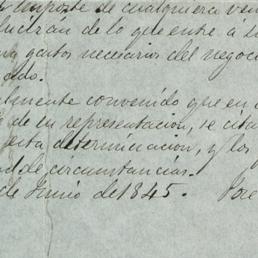 importe de cualquiera ven
ducirán de lo que entre á su
gastos necesarios del negoci
ado.
lmente convenido que en c
de su representacion, se cita
esta determinacion, y los
d de circunstancias.
de Junio de 1845. José